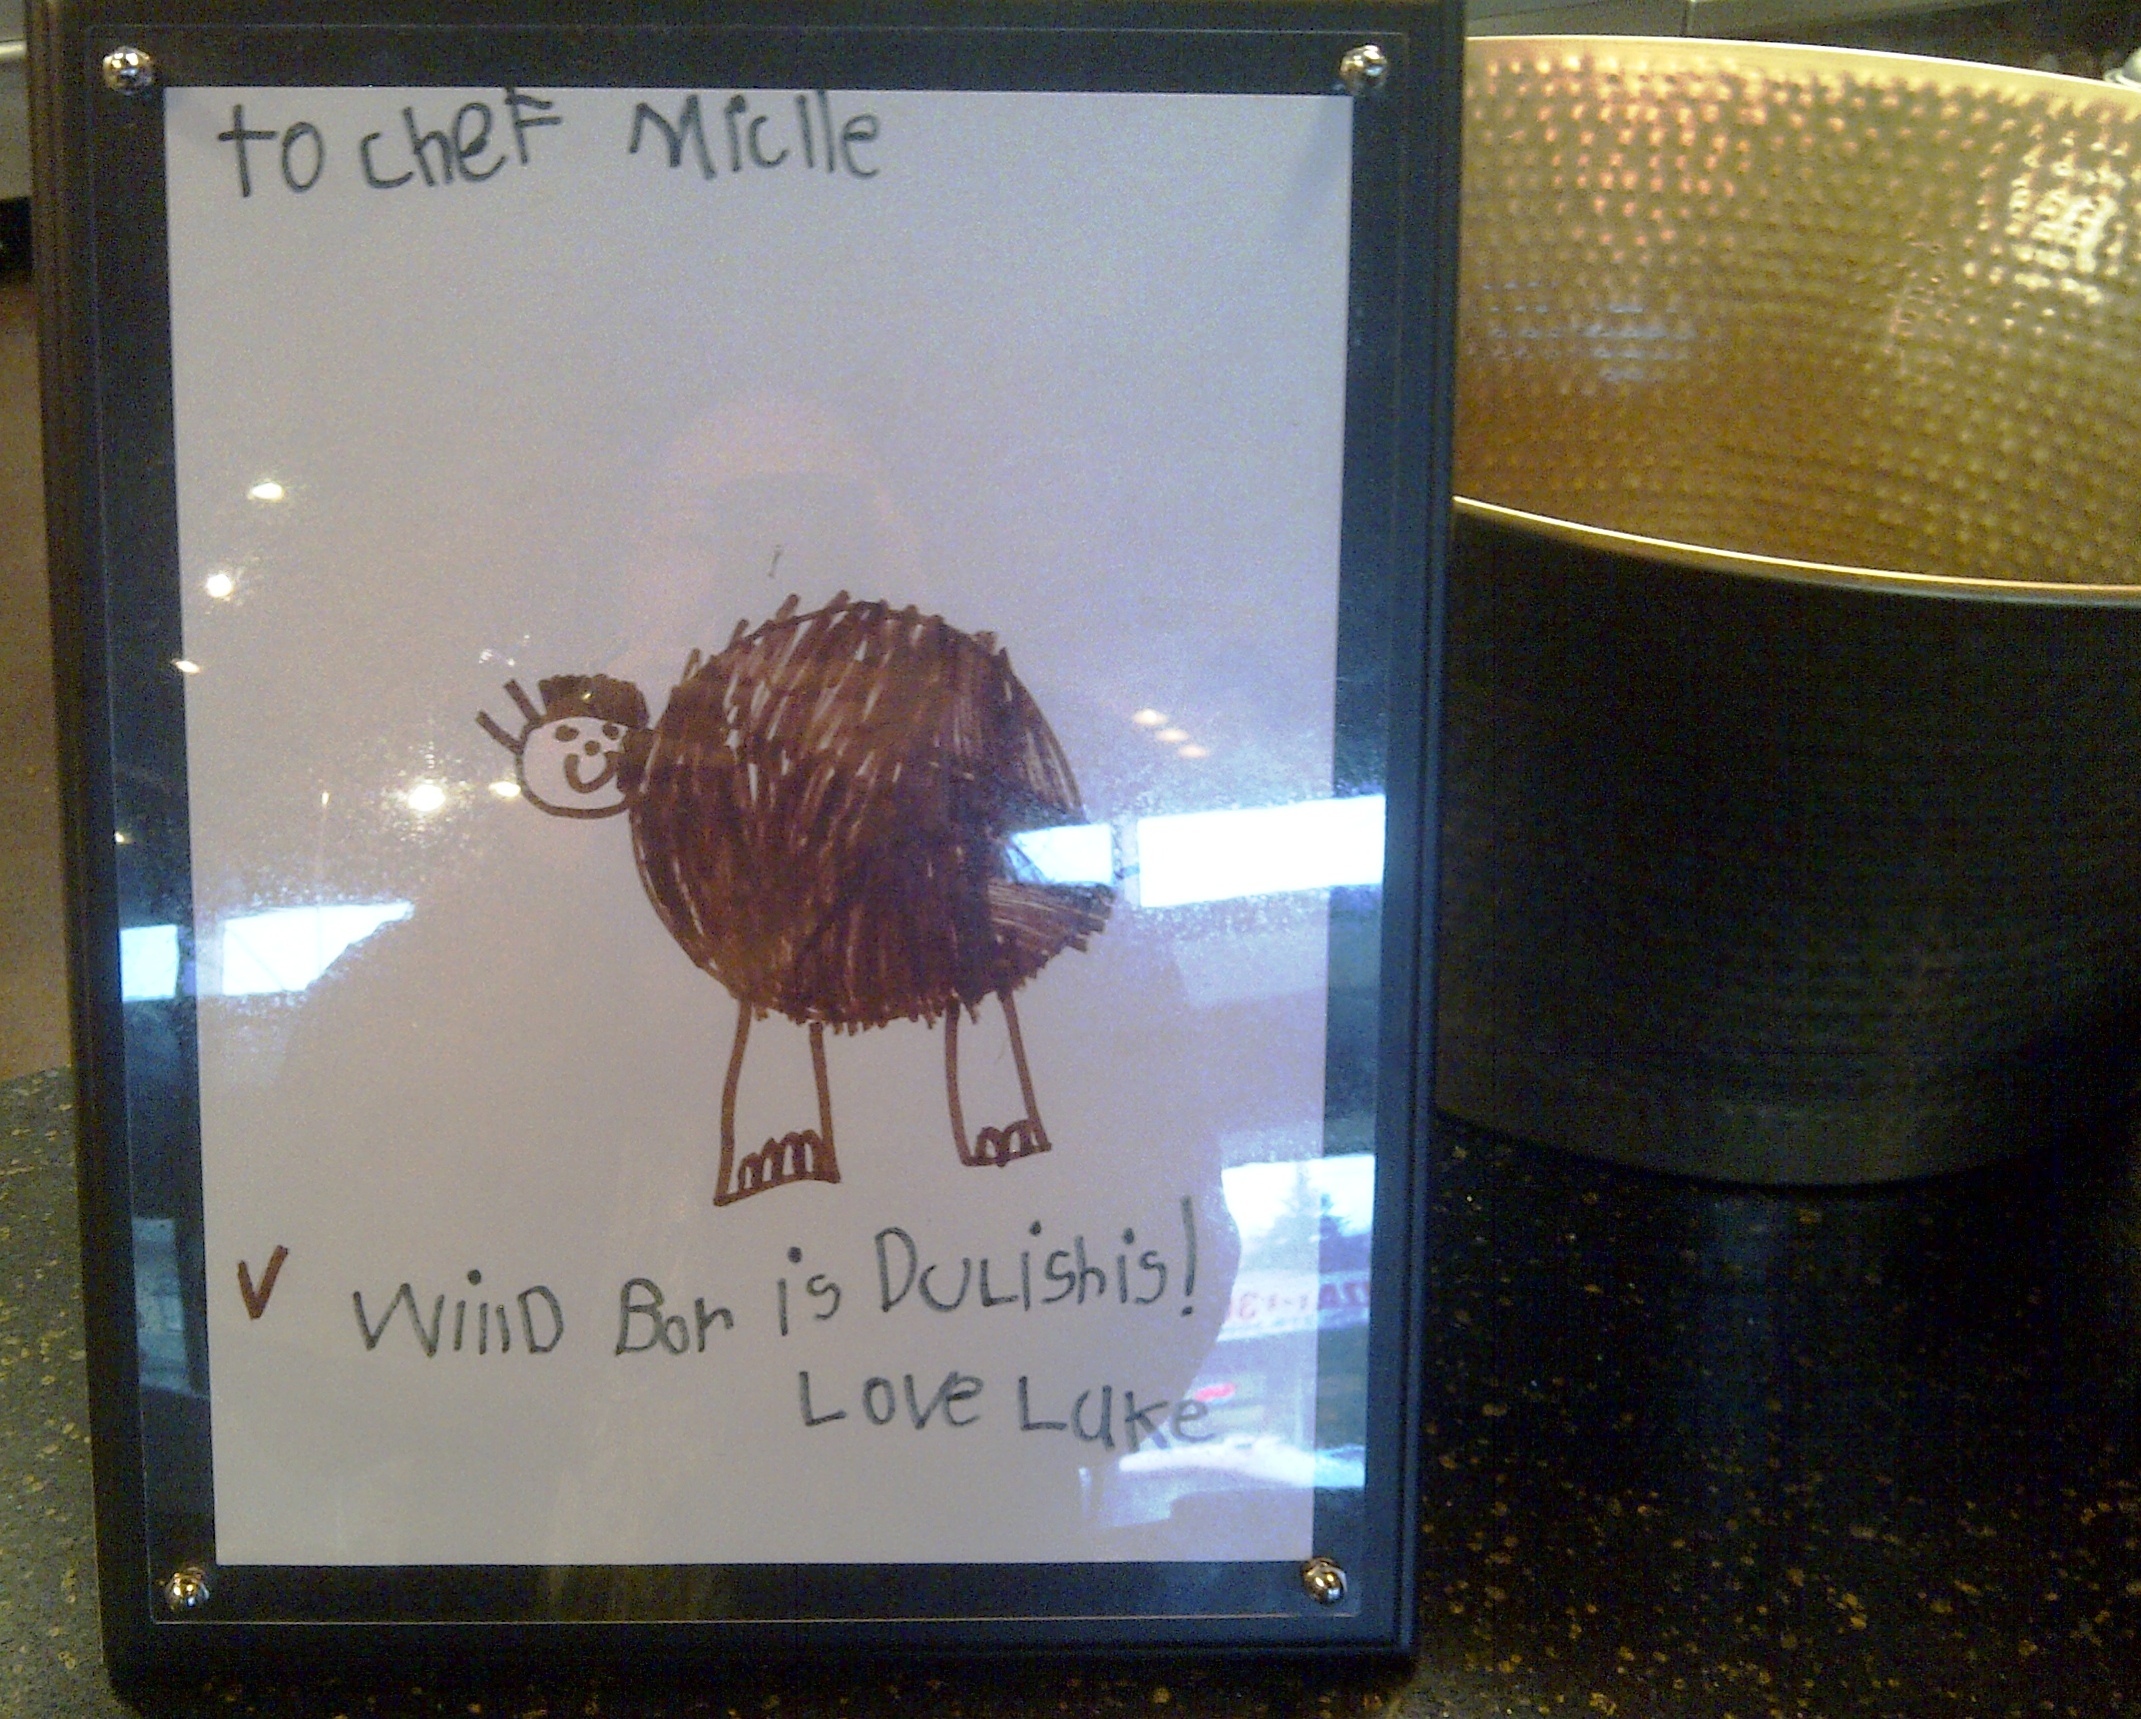 to cheF Miclle
V WiiiD Bor is DuLishis!
Love Luke